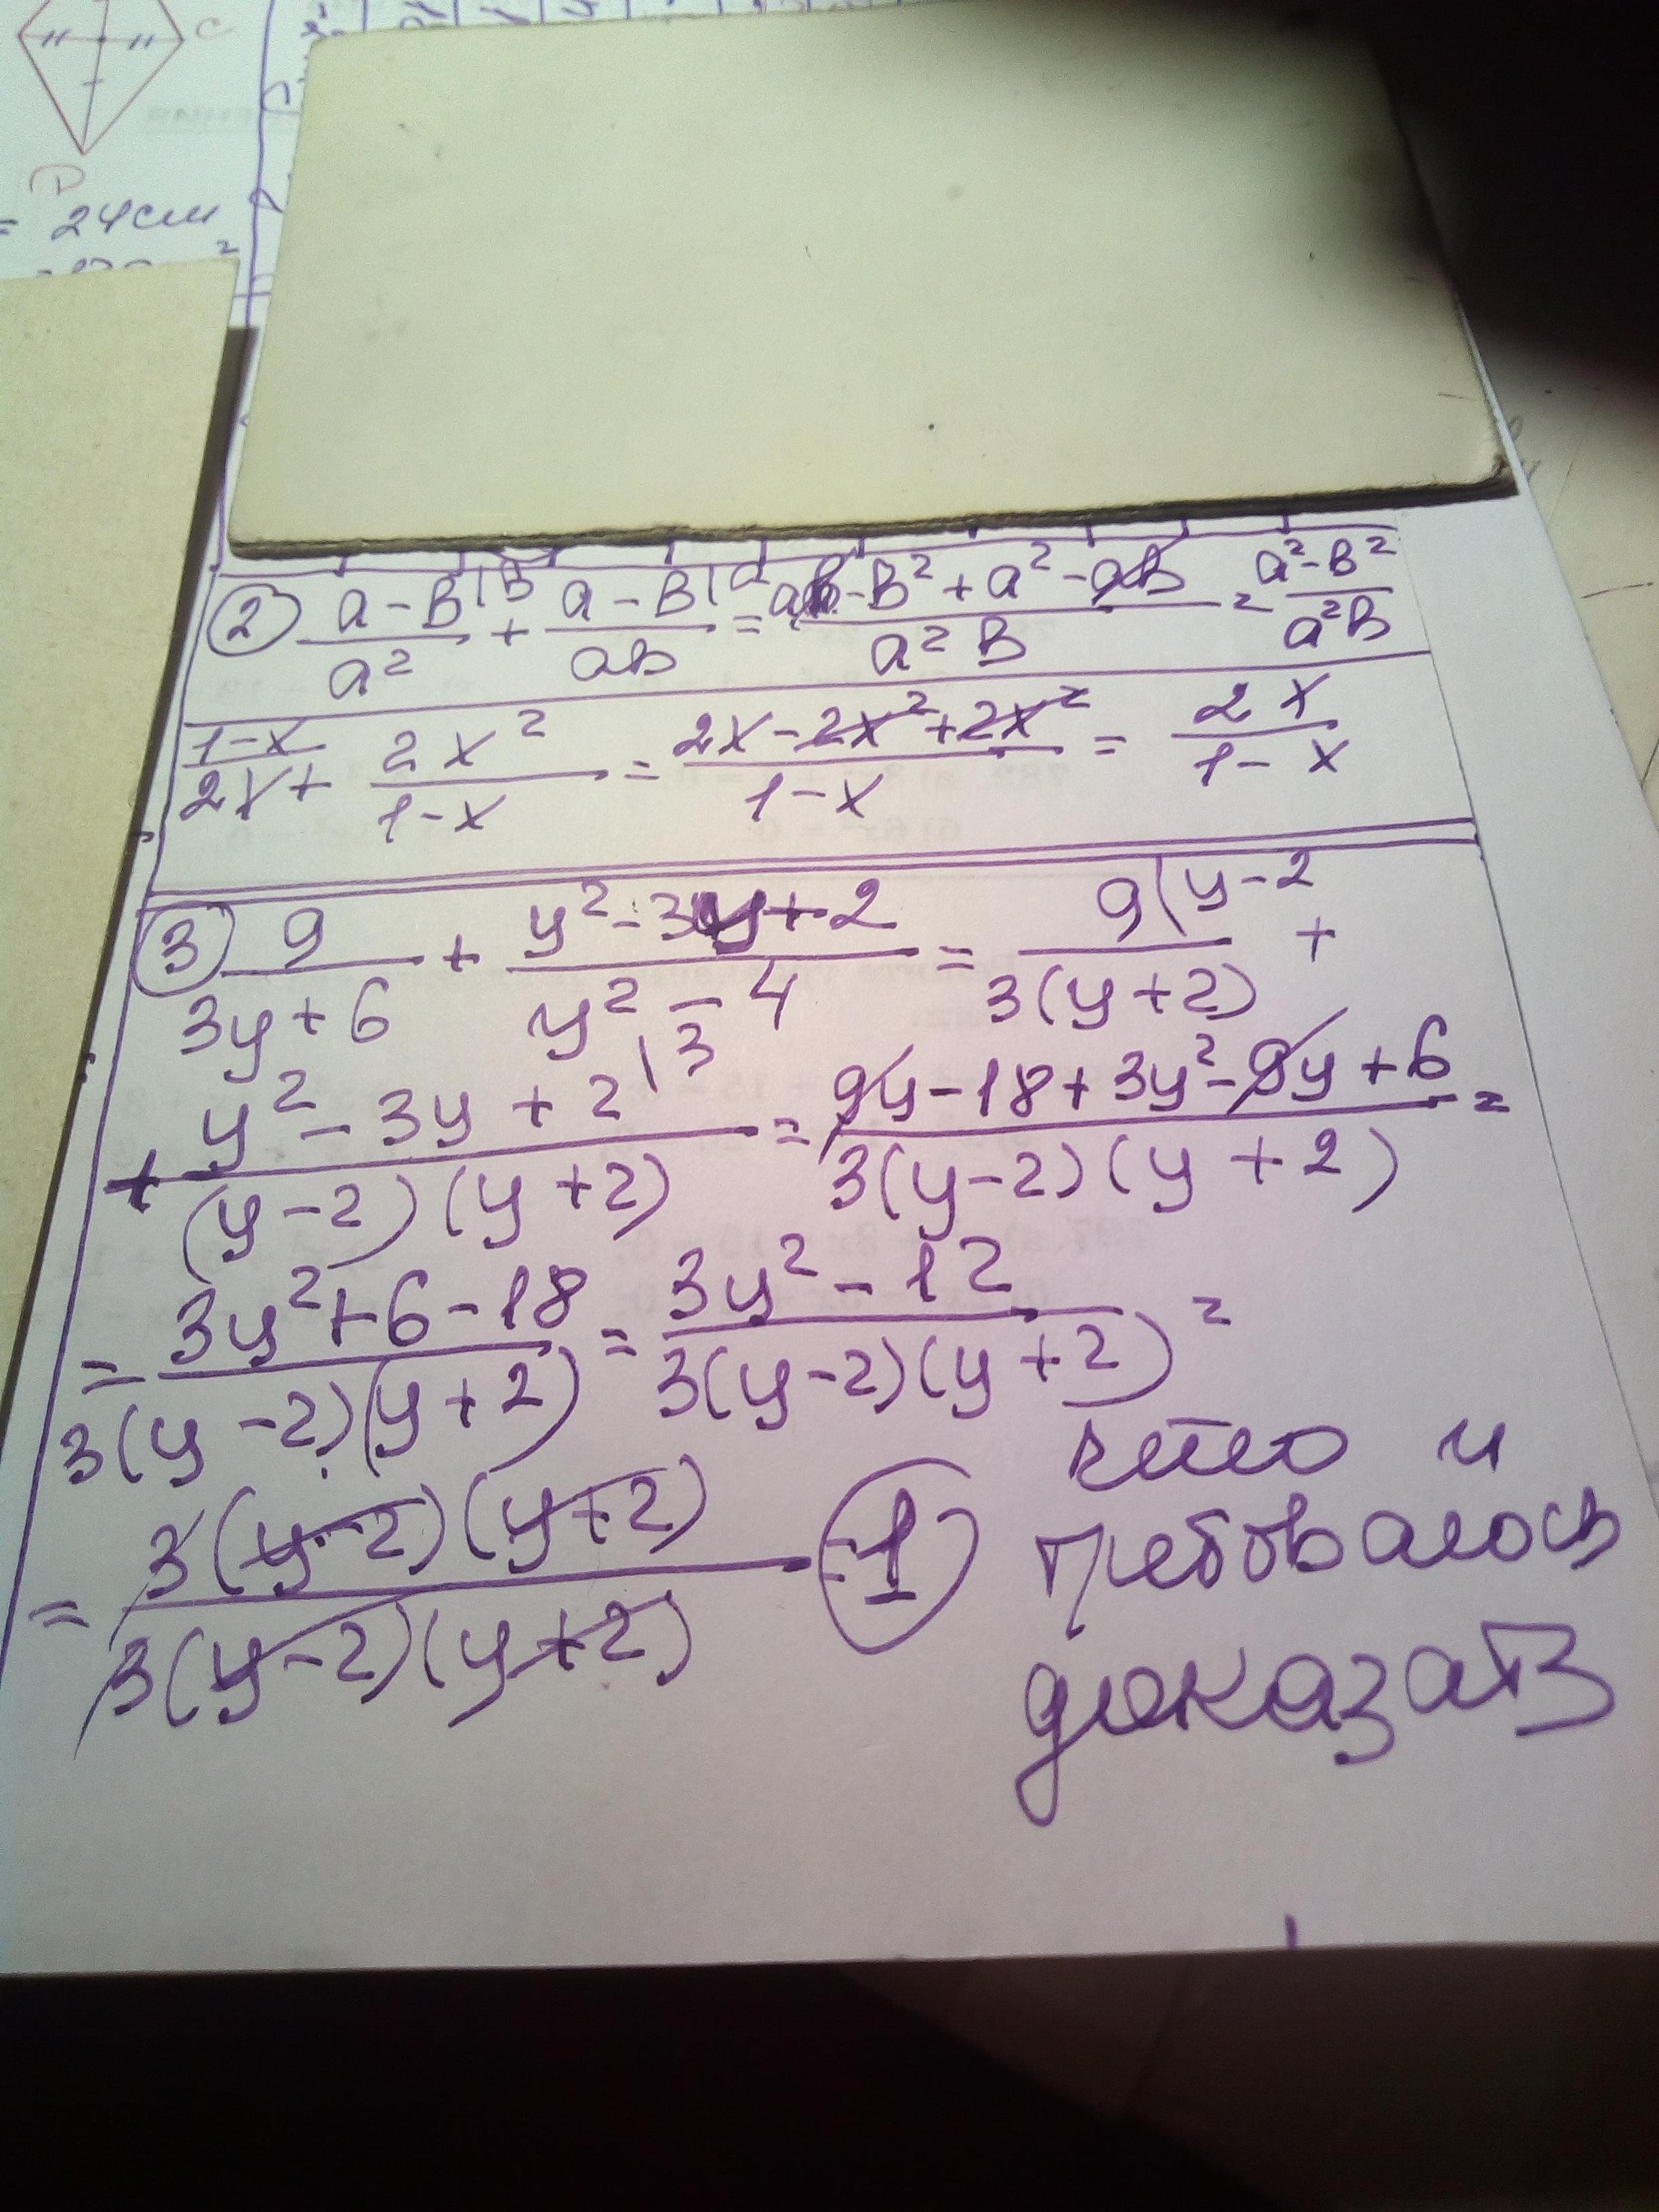 C
D
= 24 см
② (a-B|B)/a² + (a-B|a)/(aB) = (aB-B²+a²-aB)/(a²B) = (a²-B²)/(a²B)
2x|1-x + 2x²/(1-x) = (2x-2x²+2x²)/(1-x) = 2x/(1-x)
③ 9/(3y+6) + (y²-3y+2)/(y²-4) = 9|y-2/(3(y+2)) +
+ (y²-3y+2|3)/((y-2)(y+2)) = (9y-18+3y²-9y+6)/(3(y-2)(y+2)) =
= (3y²+6-18)/(3(y-2)(y+2)) = (3y²-12)/(3(y-2)(y+2)) =
= 3(y-2)(y+2)/(3(y-2)(y+2)) = 1
что и
требовалось
доказать